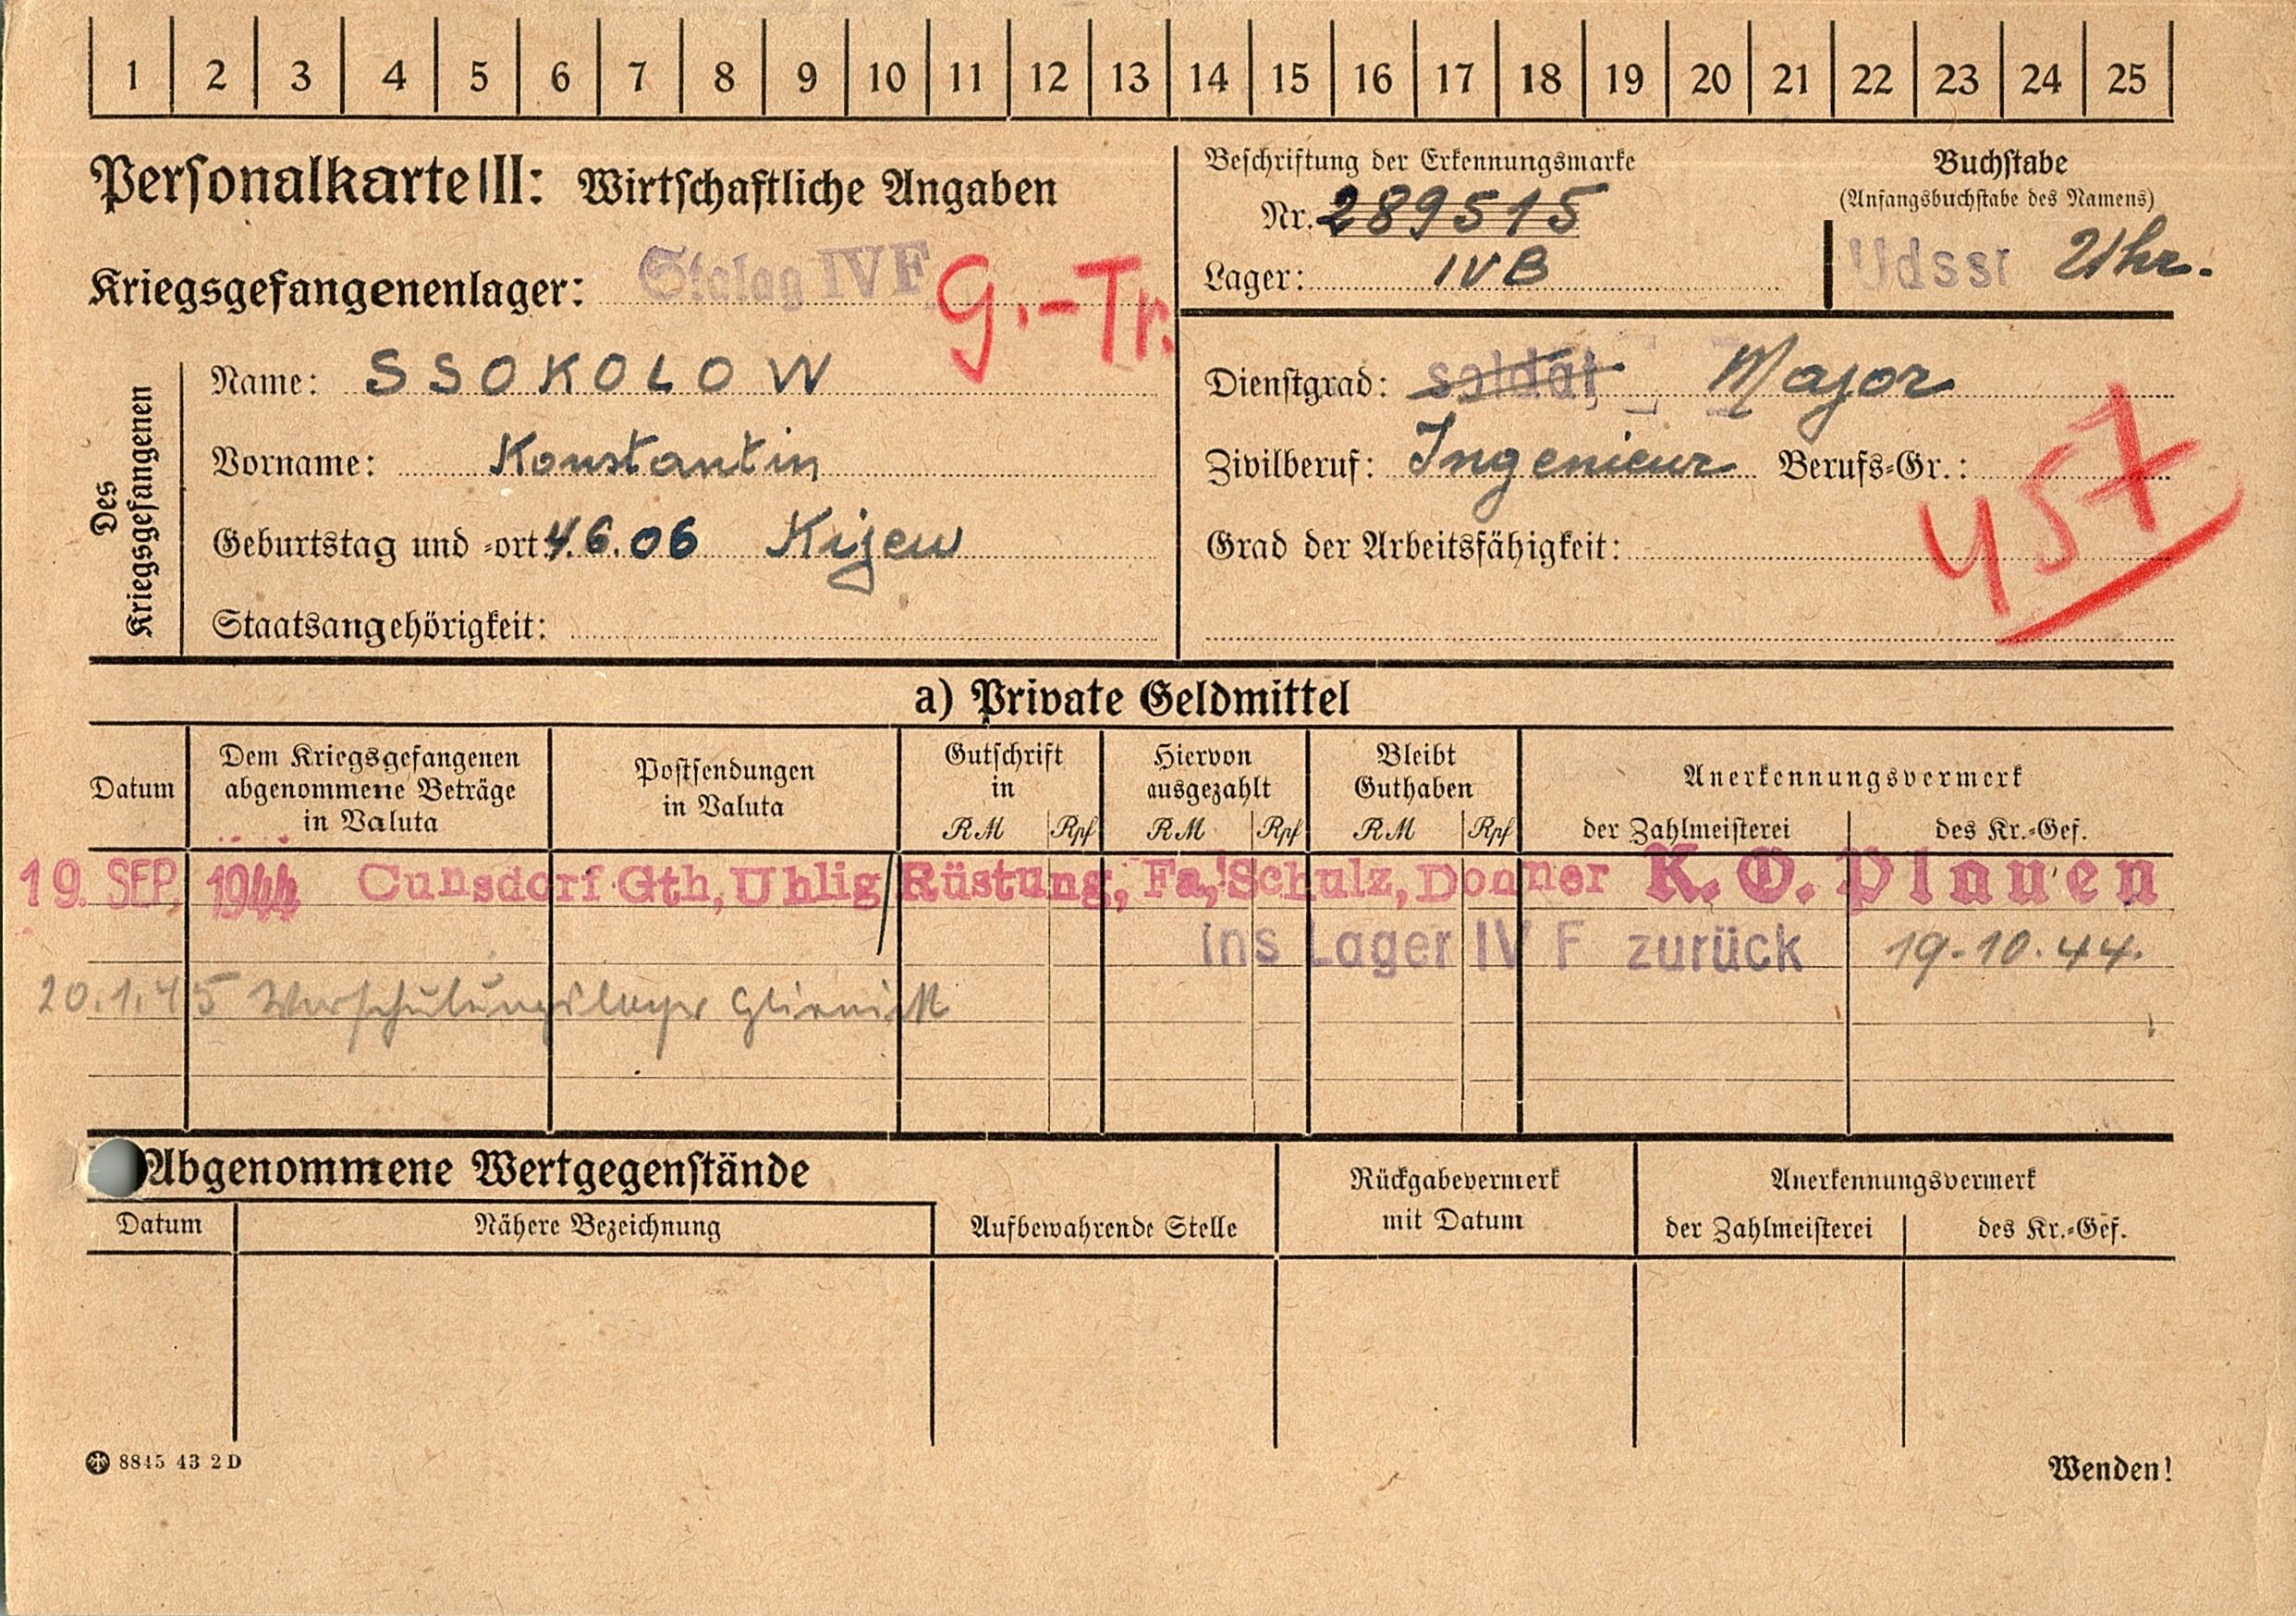 1 2 3 4 5 6 7 8 9 10 11 12 13 14 15 16 17 18 19 20 21 22 23 24 25
Personalkarte II: Wirtschaftliche Angaben
Kriegsgefangenenlager: Stalag IV F
G.-Tr.
Beschriftung der Erkennungsmarke
Nr. 289515
Lager: IV B
Buchstabe
(Anfangsbuchstabe des Namens)
Udssr Ukr.
Des Kriegsgefangenen
Name: SSOKOLOW
Vorname: Konstantin
Geburtstag und -ort: 4.6.06 Kijew
Staatsangehörigkeit:
Dienstgrad: soldat Major
Zivilberuf: Ingenieur Berufs-Gr.:
Grad der Arbeitsfähigkeit:
457
a) Private Geldmittel
Datum
Dem Kriegsgefangenen
abgenommene Beträge
in Valuta
Postsendungen
in Valuta
Gutschrift
in
RM Rpf
Hiervon
ausgezahlt
RM Rpf
Bleibt
Guthaben
RM Rpf
Anerkennungsvermerk
der Zahlmeisterei des Kr.-Gef.
19. SEP. 1944 Cunsdorf Gth, Uhlig/Rüstung, Fa, Schulz, Donner K. O. Plauen
ins Lager IV F zurück 19.10.44.
20.1.45 Vorschulungslager Glienick
Abgenommene Wertgegenstände
Datum
Nähere Bezeichnung
Aufbewahrende Stelle
Rückgabevermerk
mit Datum
Anerkennungsvermerk
der Zahlmeisterei des Kr.-Gef.
8845 43 2 D
Wenden!